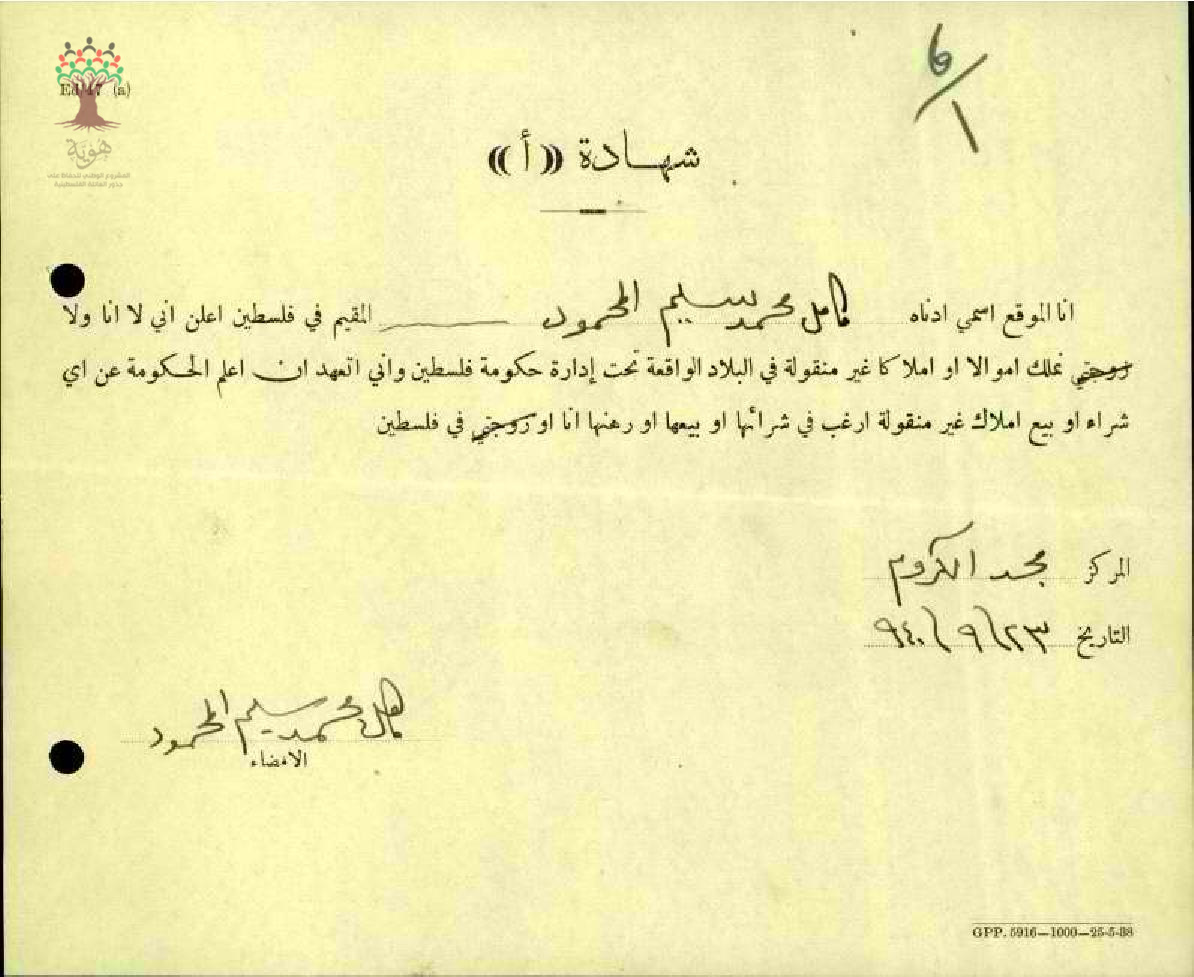 ٦/١
Ed 17 (a)
هوية
المشروع الوطني للحفاظ على
جذور العائلة الفلسطينية
شهادة «أ»
انا الموقع اسمي ادناه كامل محمد سليم المحمود المقيم في فلسطين اعلن اني لا انا ولا
زوجتي نملك اموالا او املاكا غير منقولة في البلاد الواقعة تحت إدارة حكومة فلسطين واني اتعهد ان اعلم الحكومة عن اي
شراء او بيع املاك غير منقولة ارغب في شرائها او بيعها او رهنها انا او زوجتي في فلسطين
المركز مجد الكروم
التاريخ ٢٣/٩/٩٤٠
كامل محمد سليم المحمود
الامضاء
GPP. 5916—1000—25-5-38